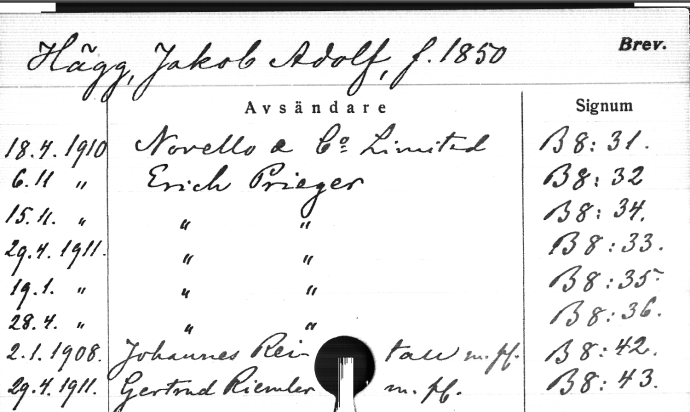 Hägg, Jakob Adolf, f. 1850 Brev.
Avsändare Signum
18.4. 1910 Novello & Co Limited B 8: 31.
6.11 " Erich Prieger B 8: 32
15.11. " " " B 8: 34.
29.4. 1911. " " B 8: 33.
19.1. " " " B 8: 35
28.4. " " " B 8: 36.
2.1. 1908. Johannes m. fl. B 8: 42.
29.4. 1911. Gertrud Riemler m. fl. B 8: 43.